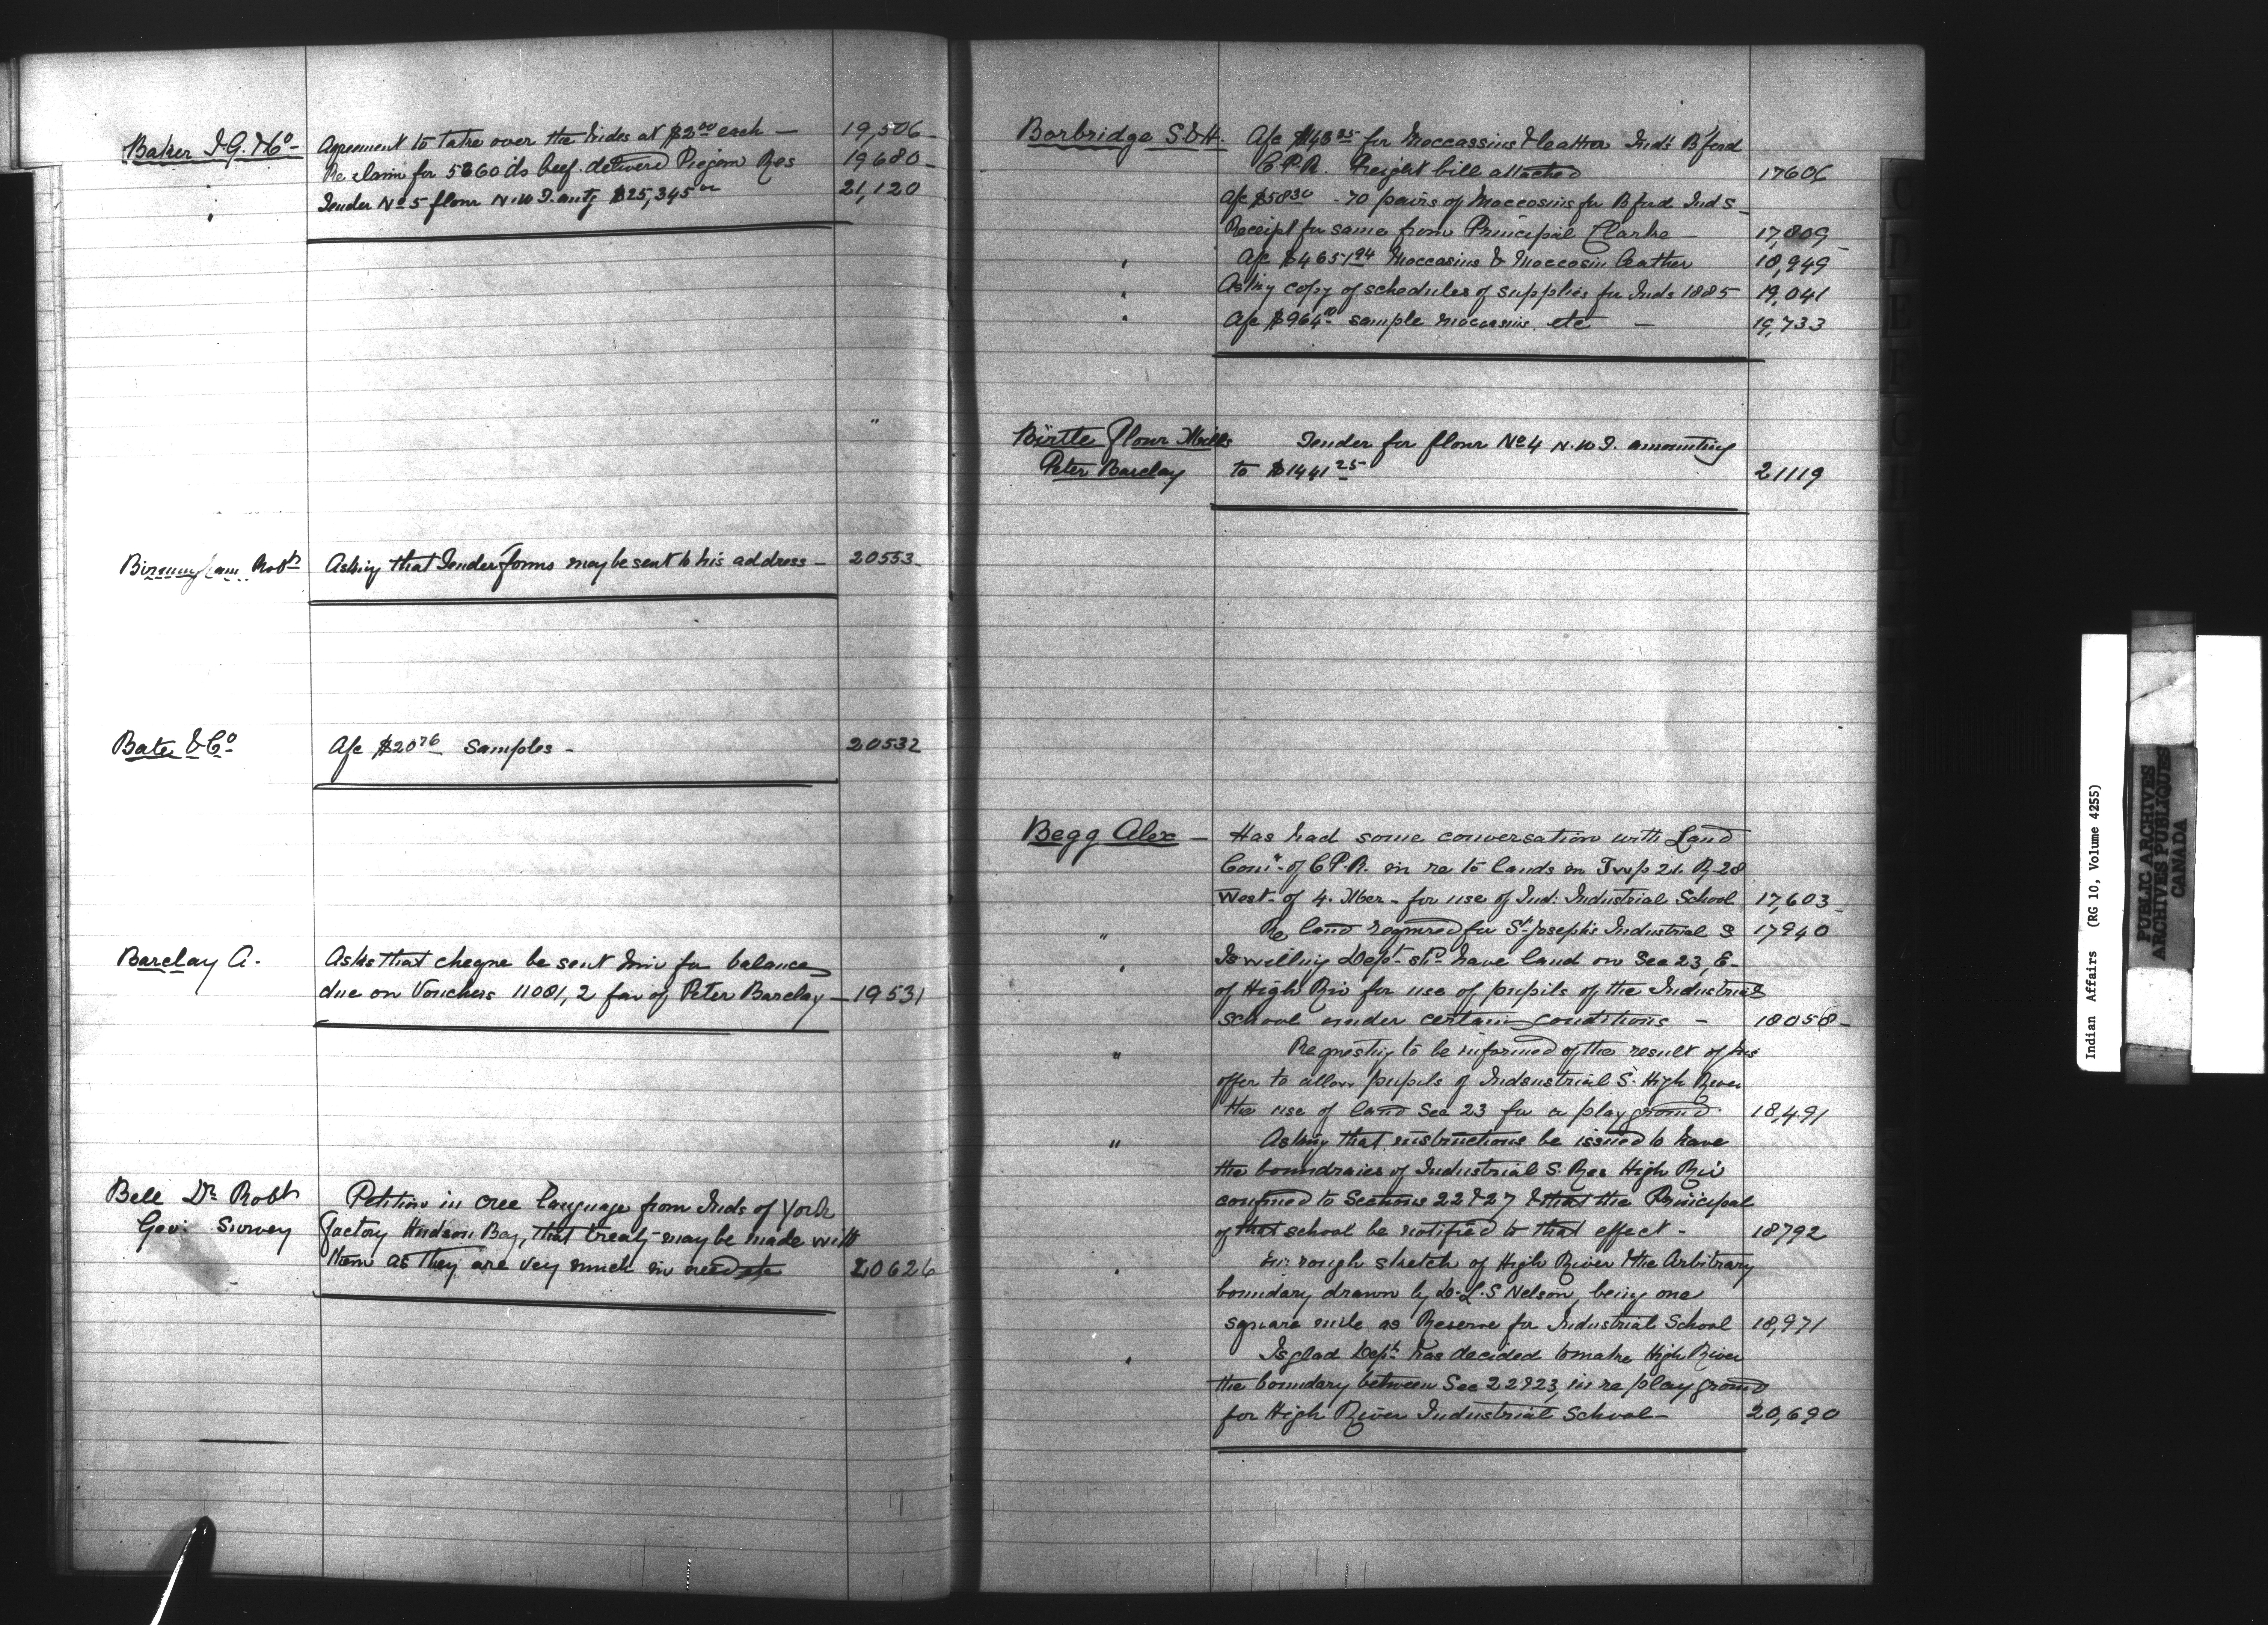 Baker I.G. & Co Agreement to take over the hides at $2.00 each — 19,506
Re claim for 5860 lbs beef delivered Piegan Res 19680
" Tender No 5 flour N.W.T. amtg $25,345.00 21,120
Birmingham Robt Asking that Tender forms may be sent to his address — 20553
Bate & Co A/c $20.76 Samples — 20532
Barclay A. Asks that cheque be sent him for balance
due on Vouchers 11081, 2 fav of Peter Barclay — 19531
Bell Dr Robt Petition in Cree language from Inds of York
Geol Survey Factory Hudson Bay, that treaty may be made with
them as they are very much in need 20626
Borbridge S. & H. A/c for Moccassins & leather Inds B'ford
C.P.R. Freight bill attached 17606
A/c $58.30 - 70 pairs of Moccosins for B'ford Inds
Receipt for same from Principal Clarke — 17,809
" A/c $4651.94 Moccasins & Moccosin leather 18,949
" Asking copy of schedules of supplies for Inds 1885 19,041
" A/c sample moccasins etc — 19,733
Birtle Flour Mills Tender for flour No 4 N.W.T. amounting
Peter Barclay to $1441.25 21119
Begg Alex — Has had some conversation with Land
Comr. of C.P.R. in re to lands in Twp 21. R-28
West of 4. Mer - for use of Ind. Industrial School 17,603
" Re land required for St Joseph's Industrial S 17940
" Is willing Dept shd have land on Sec 23, E-
of High Riv for use of pupils of the Industrial
School under certain conditions — 18058
" Requesting to be informed of the result of his
offer to allow pupils of Indsustrial S. High River
the use of land Sec 23 for a play ground 18,491
" Asking that instructions be issued to have
the boundraies of Industrial S. Res High Riv
confined to Sections 22 & 27 & that the Principal
of that school be notified to that effect — 18792
" rough sketch of High River & the Arbitrary
boundary drawn by D.L.S Nelson, being one
square mile as Reserve for Industrial School 18,971
" Is glad Dept has decided to make High River
the boundary between Sec 22 & 23, in re play ground
for High River Industrial School — 20,690
Indian Affairs (RG 10, Volume 4255)
PUBLIC ARCHIVES
ARCHIVES PUBLIQUES
CANADA